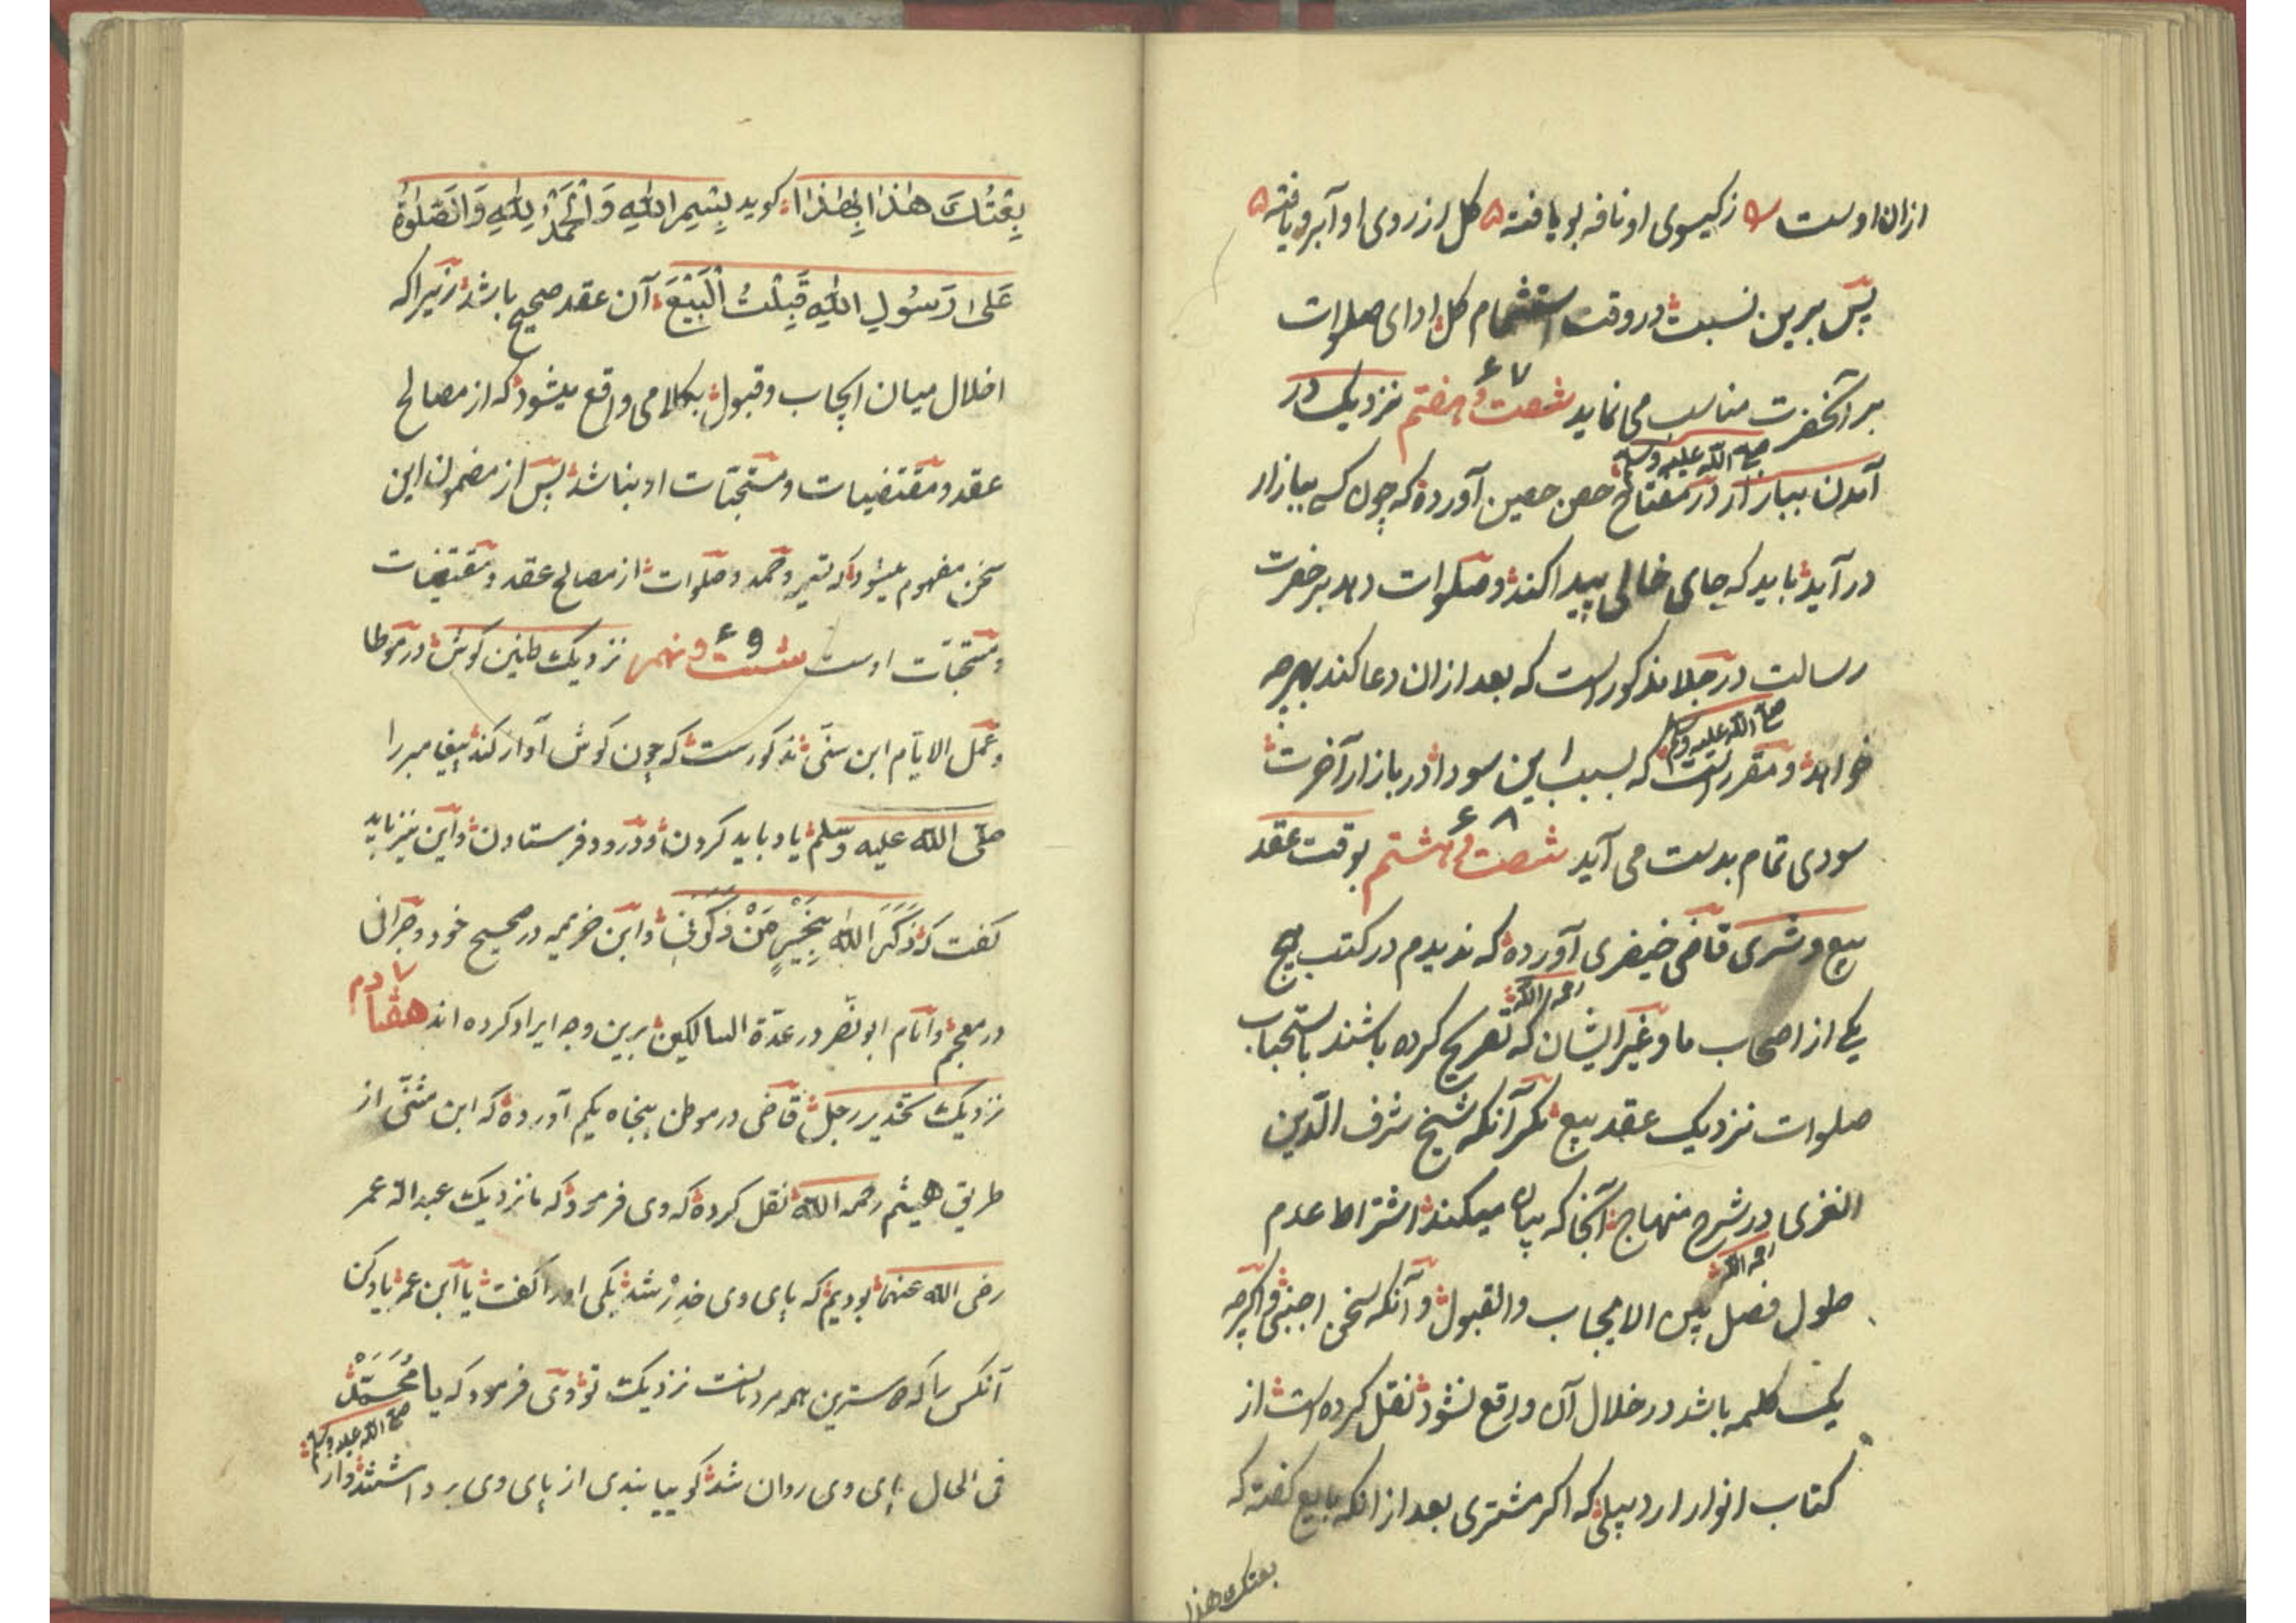 ازان اوست ۵ ز کیسوی او نافه بو یافته ۵ کل از روی او آبرو یافته ۵
پس برین نسبت در وقت استشمام کل ادای صلوات
بر آنحضرت مناسب می نماید شصت و هفتم ۶۷ نزدیک در
صلی الله علیه وسلم
آمدن ببازار در مفتاح حصن حصین آورده که چون کسی ببازار
در آید باید که جای خالی پیدا کند و صلوات دهد بر حضرت
رسالت در جلا مذکور است که بعد ازان دعا کند بهرچه
صلی الله علیه وسلم
خواهد و مقرر است که بسبب این سودا در بازار آخرت
سودی تمام بدست می آید شصت و هشتم ۶۸ بوقت عقد
بیع و شری قاضی خیضری آورده که ندیدم در کتب هیچ
رحمه الله
یکی از اصحاب ما و غیر ایشان که تصریح کرده باشند باستحباب
صلوات نزدیک عقد بیع مکر آنکه شیخ شرف الدین
الغزی در شرح منهاج آنجا که بیان میکند اشتراط عدم
رحمه الله
طول فصل بین الایجاب والقبول و آنکه سخن اجنبی و اکرچه
یک کلمه باشد در خلال آن واقع نشود نقل کرده است از
کتاب انوار اردبیلی که اکر مشتری بعد از انکه بایع کفته که
بعتک هذا
بِعْتُكَ هٰذا بِهٰذا کوید بِسْمِ اللهِ وَالْحَمْدُ لِلهِ وَالصَّلٰوةُ
عَلٰی رَسُولِ اللهِ قَبِلْتُ الْبَیْعَ آن عقد صحیح باشد زیرا که
اخلال میان ایجاب و قبول بکلامی واقع میشود که از مصالح
عقد و مقتضیات و مستحبات او بناشد پس از مضمون این
سخن مفهوم میشود که تسمیه و حمد و صلوات از مصالح عقد و مقتضیات
و مستحبّات اوست شست و نهم ۶۹ نزدیک طنین کوش در موطا
و عمل الایّام ابن سنّی مذکورست که چون کوش آواز کند پیغامبر را
صلّی الله علیه وسلم یاد باید کردن و درود فرستادن و این نیز باید
کفت که ذَكَرَ اللهُ بِخَیْرٍ مَنْ ذَكَرَنِی و ابن خزیمه در صحیح خود و طبرانی
در معجم و امام ابو نصر در عدّة السالکین برین وجه ایراد کرده اند هفتادم ۷۰
نزدیک تخدیر رجل قاضی در موطن پنجاه یکم آورده که ابن مثنّی از
طریق هیثم رحمه الله نقل کرده که وی فرمود که ما نزدیک عبدالله عمر
رضی الله عنهما بودیم که پای وی خدر شد یکی او را کفت یا ابن عمر یاد کن
آنکس را که دوسترین همه مردمانست نزدیک تو وی فرمود که یا مُحَمَّدْ
صلی الله علیه وسلم
فی الحال پای وی روان شد کوییا بندی از پای وی برداشتند و از